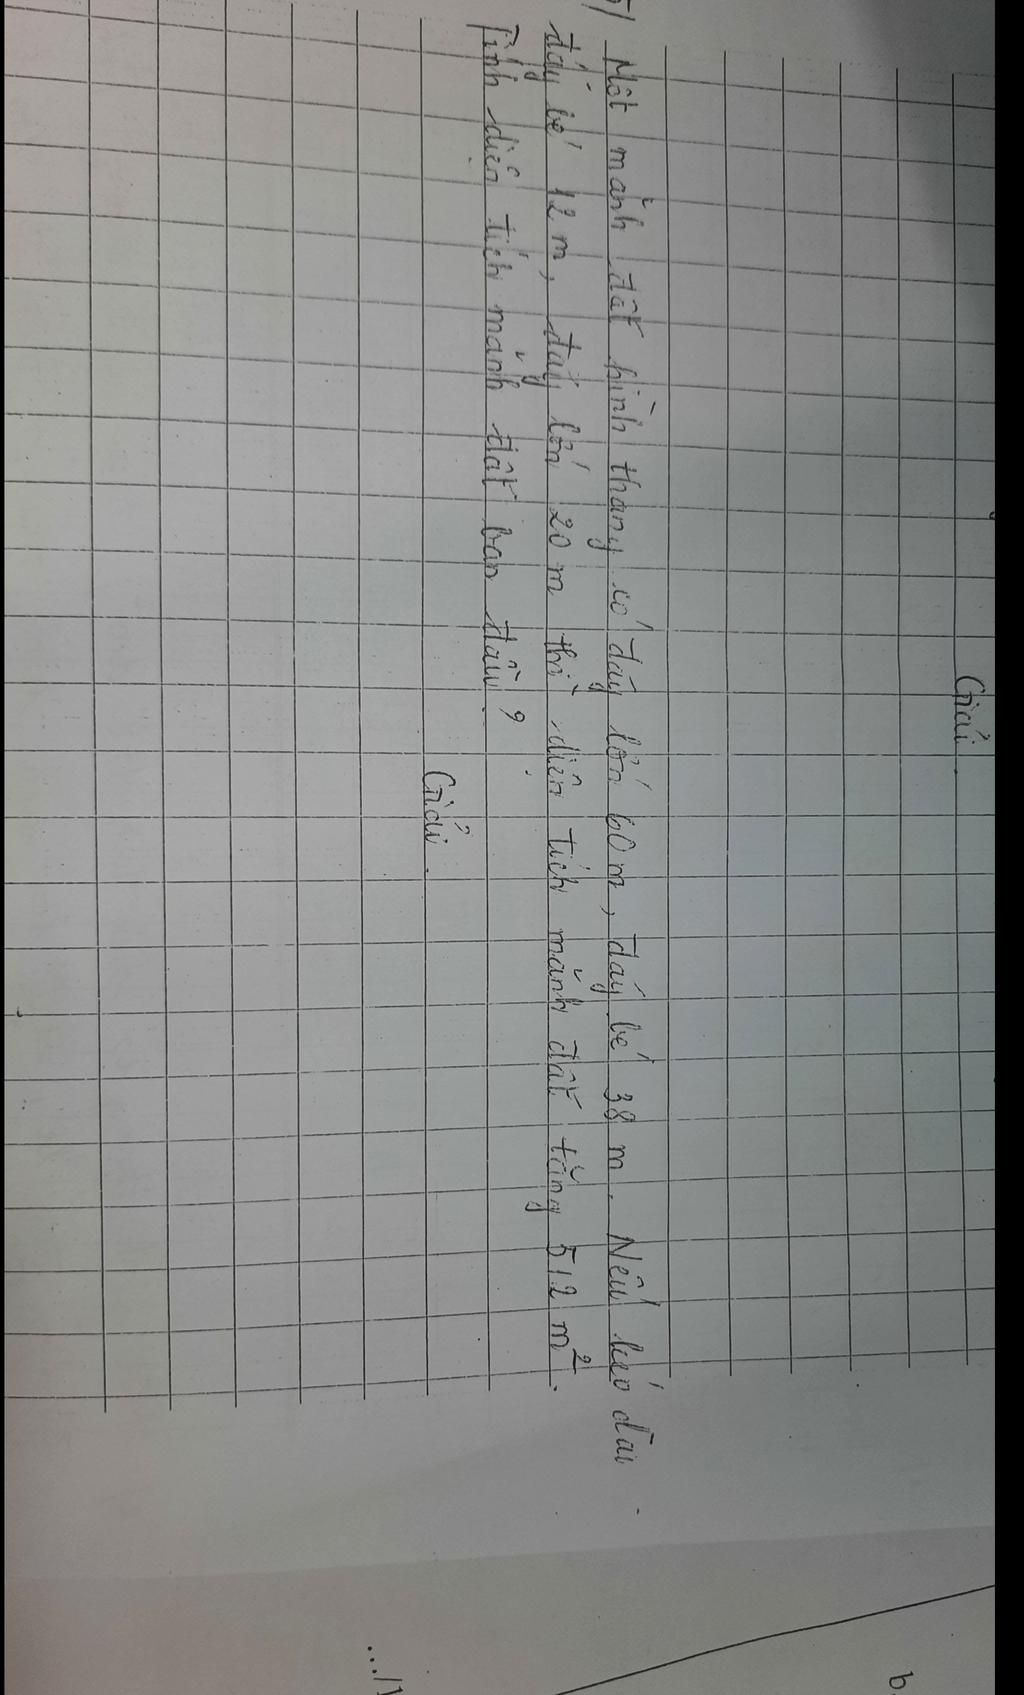 Giải
5/ Một mảnh đất hình thang có đáy lớn 60m, đáy bé 38 m. Nếu kéo dài
đáy bé 12 m, đáy lớn 20 m thì diện tích mảnh đất tăng 512 m².
Tính diện tích mảnh đất ban đầu?
Giải
b